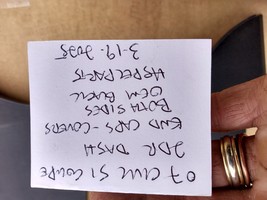 07 CIVIC SI COUPE
2DR DASH
END CAPS - COVERS
BOTH SIDES
OEM BLACK
ASPEC PARTS
3-19-2025